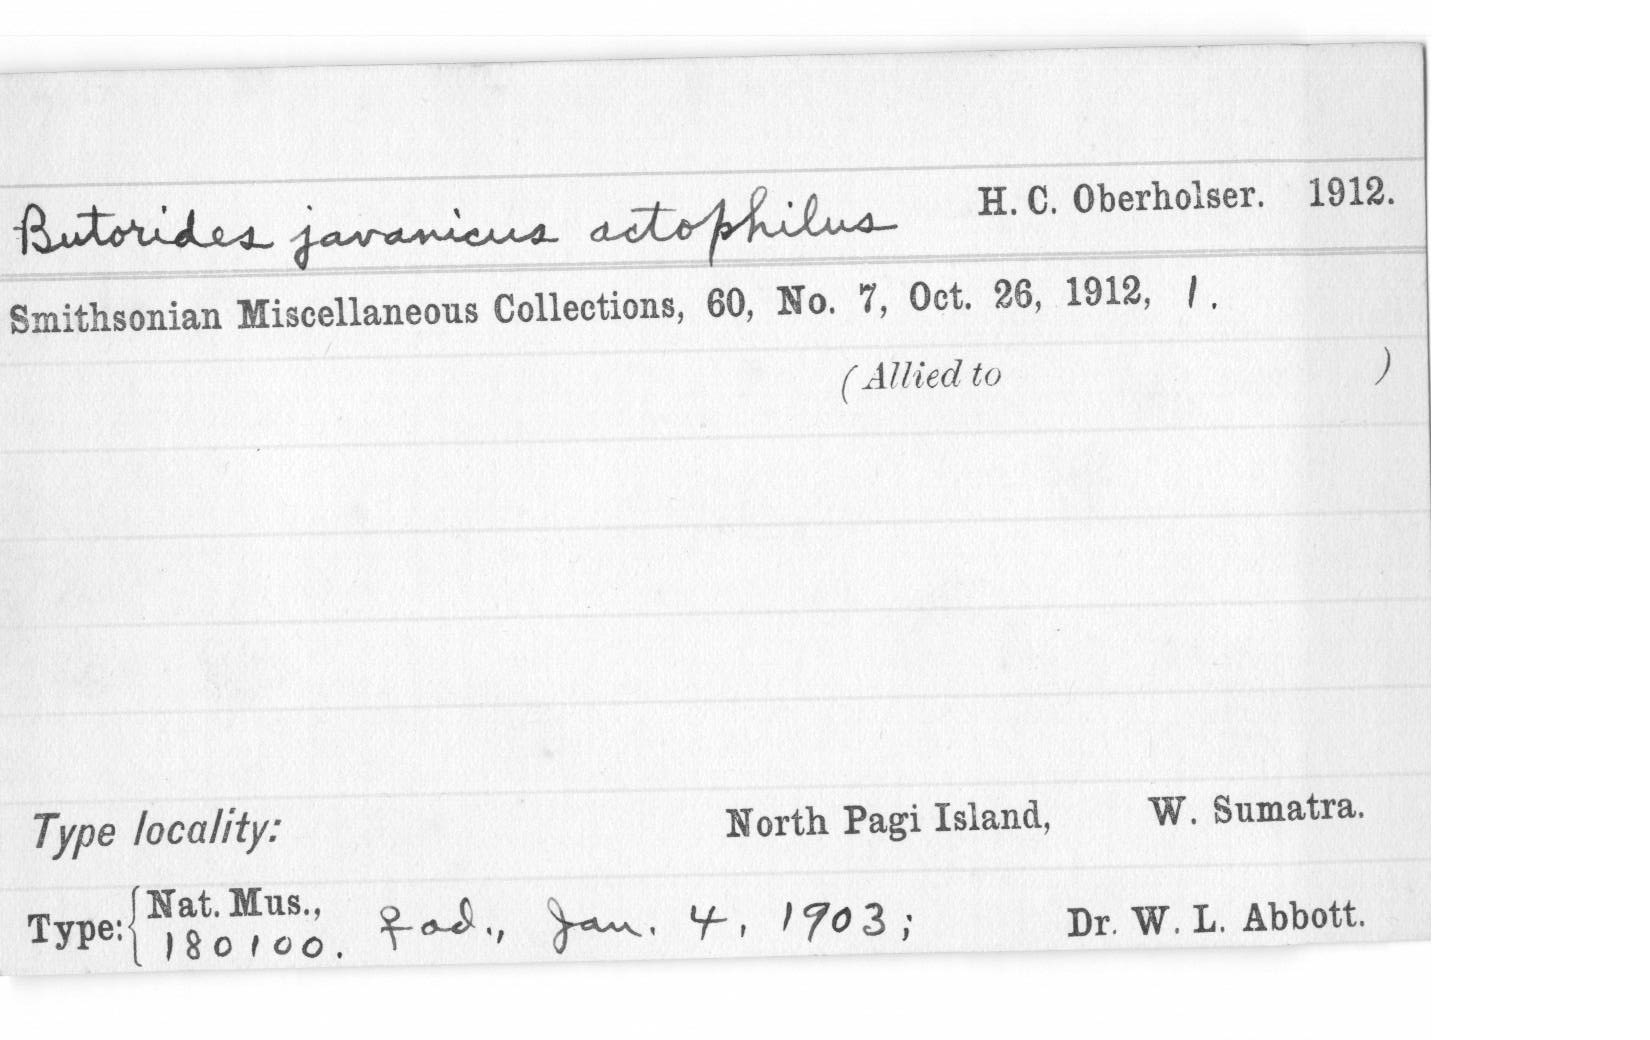 Butorides javanicus actophilus H. C. Oberholser. 1912.
Smithsonian Miscellaneous Collections, 60, No. 7, Oct. 26, 1912, 1.
(Allied to )
Type locality: North Pagi Island, W. Sumatra.
Type: { Nat. Mus., 180100. ♀ ad., Jan. 4, 1903; Dr. W. L. Abbott.